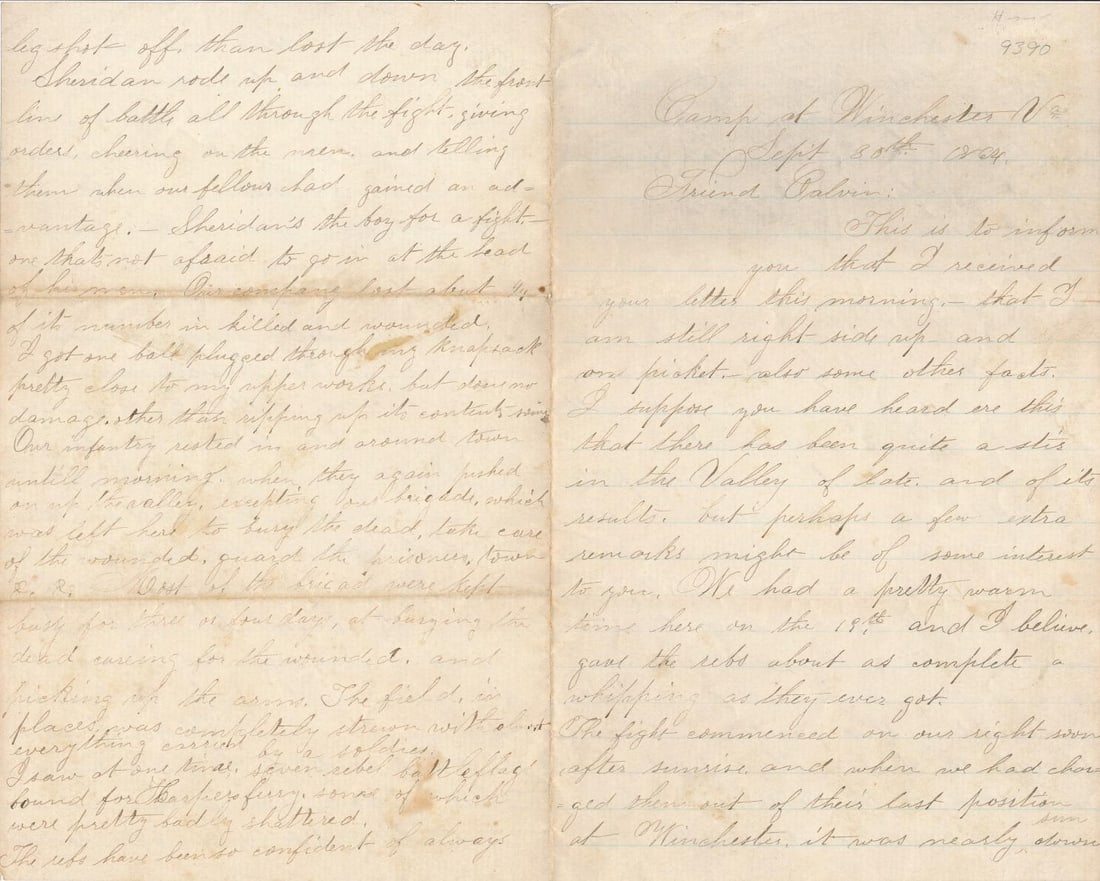 leg shot off, than lost the day.
Sheridan rode up and down the front
line of battle all through the fight, giving
orders, cheering on the men, and telling
them when our fellows had gained an ad=
=vantage. — Sheridan's the boy for a fight —
one thats not afraid to go in at the head
of his men. Our company lost about 1/4
of its number in killed and wounded.
I got one ball plugged through my knapsack
pretty close to my upper works, but does no
damage, other than ripping up its contents some
Our infantry rested in and around town
untill morning, when they again pushed
on up the valley, excepting our brigade, which
was left here to bury the dead, take care
of the wounded, guard the prisoners, town
&. &. Most of the brigad were kept
busy for three or four days, at burying the
dead careing for the wounded, and
picking up the arms. The field, in
places, was completely strewn with almost
everything carried by a soldier.
I saw at one time, seven rebel battleflags
bound for Harpersferry, some of which
were pretty badly shattered.
The rebs have been so confident of always
9390
Camp at Winchester Va
Sept 30th 1864.
Friend Calvin:
This is to inform
you that I received
your letter this morning, — that I
am still right side up and
on picket. — also some other facts.
I suppose you have heard ere this
that there has been quite a stir
in the Valley of late, and of its
results, but perhaps a few extra
remarks might be of some interest
to you. We had a pretty warm
time here on the 19th and I believe,
gave the rebs about as complete a
whipping as they ever got.
The fight commenced on our right soon
after sunrise, and when we had char
=ged them out of their last position
at Winchester, it was nearly sun down